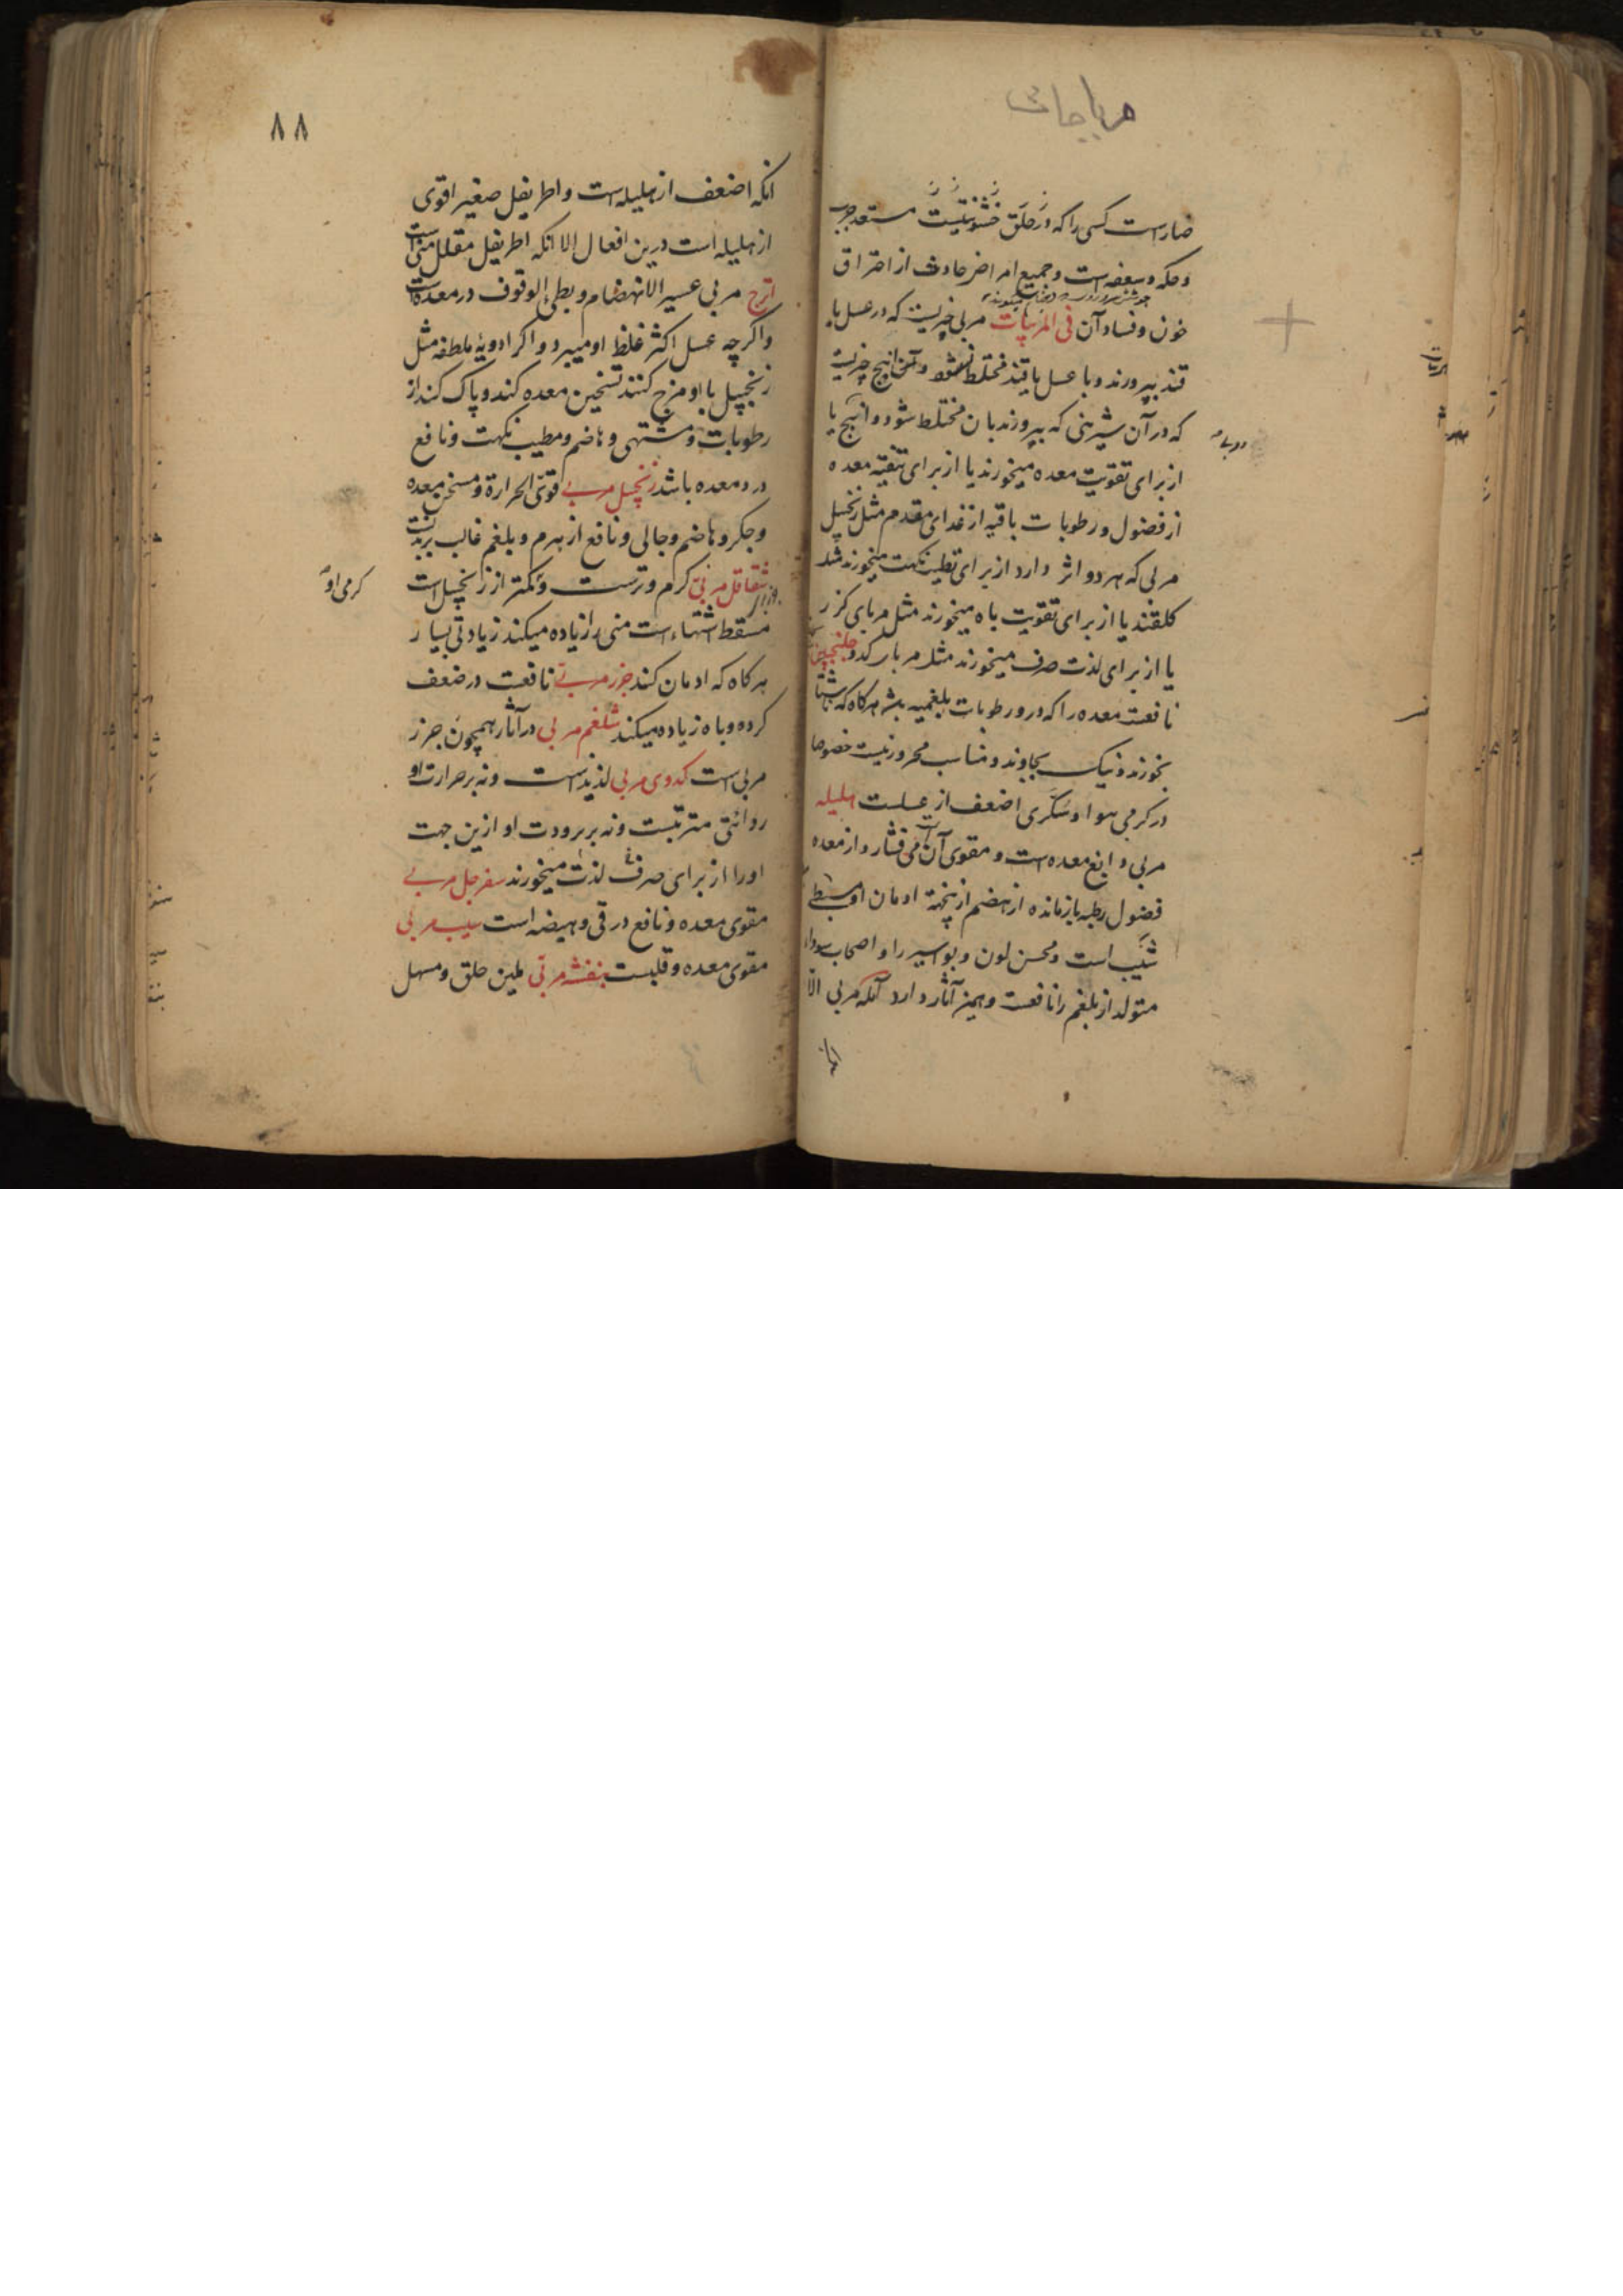 مرباجات
ضار است کسی را که در حلق خشونتیست مستعد جرب
و حکه و سعفه است و جمیع امراض حادث از احتراق
خون و فساد آن فی المربیات مربی چیزیست که در عسل یا
قند بپرورند و با عسل یا قند مختلط نشود و انبج چیزیست
که در آن شیرینی که بپرورند بان مختلط شود و انبج یا
از برای تقویت معده میخورند یا از برای تنقیه معده
از فضول و رطوبات باقیه از غدای مقدم مثل زنجبیل
مربی که هر دو اثر دارد از برای تطیب نکهت میخورند مثل
کلقند یا از برای تقویت باه میخورند مثل مربای کزر
یا از برای لذت صرف میخورند مثل مربا کدو جلنجبین
نافعست معده را که در و رطوبات بلغمیه باشد هرکاه که ناشتا
بخورند و نیک بجاوند و مناسب محرور نیست خصوصا
در کرمی هوا و سکری اضعف از عسلیست هلیله
مربی دابغ معده است و مقوی آن می فشارد از معده
فضول رطبه بازمانده از هضم از پخته ادمان او مبطی
شیب است و محسن لون و بواسیر را و اصحاب سودا
متولد از بلغم را نافعست و همین آثار دارد آمله مربی الا
۸۸
انکه اضعف از هلیله است و اطریفل صغیر اقوی
از هلیله است درین افعال الا انکه اطریفل مقلل منی است
اترج مربی عسیر الانهضام و بطی الوقوف در معده است
واکرچه عسل اکثر غلظ او میبرد و اکر ادویۀ ملطفه مثل
زنجبیل با او مزج کنند تسخین معده کند و پاک کند از
رطوبات و مشتهی و هاضم و مطیب نکهت و نافع
درد معده باشد زنجبیل مربی قوی الحرارة و مسخن معده
و جکر و هاضم و جالی و نافع از هرم و بلغم غالب بر بدنست
شقاقل مربی کرم و ترست و کمتر از زنجبیل است
کرمی او
مسقط اشتهاء است منی را زیاده میکند زیادتی بسیار
هرکاه که ادمان کند جزر مربی نافعست در ضعف
کرده و باه زیاده میکند شلغم مربی در آثار همچون جزر
مربی است کدوی مربی لذیذ است و نه بر حرارت او
رواثقی مترتبست و نه بر برودت او ازین جهت
او را از برای صرف لذت میخورند سفرجل مربی
مقوی معده و نافع در قی و هیضه است سیب مربی
مقوی معده و قلبست بنفشه مربی ملین حلق و مسهل